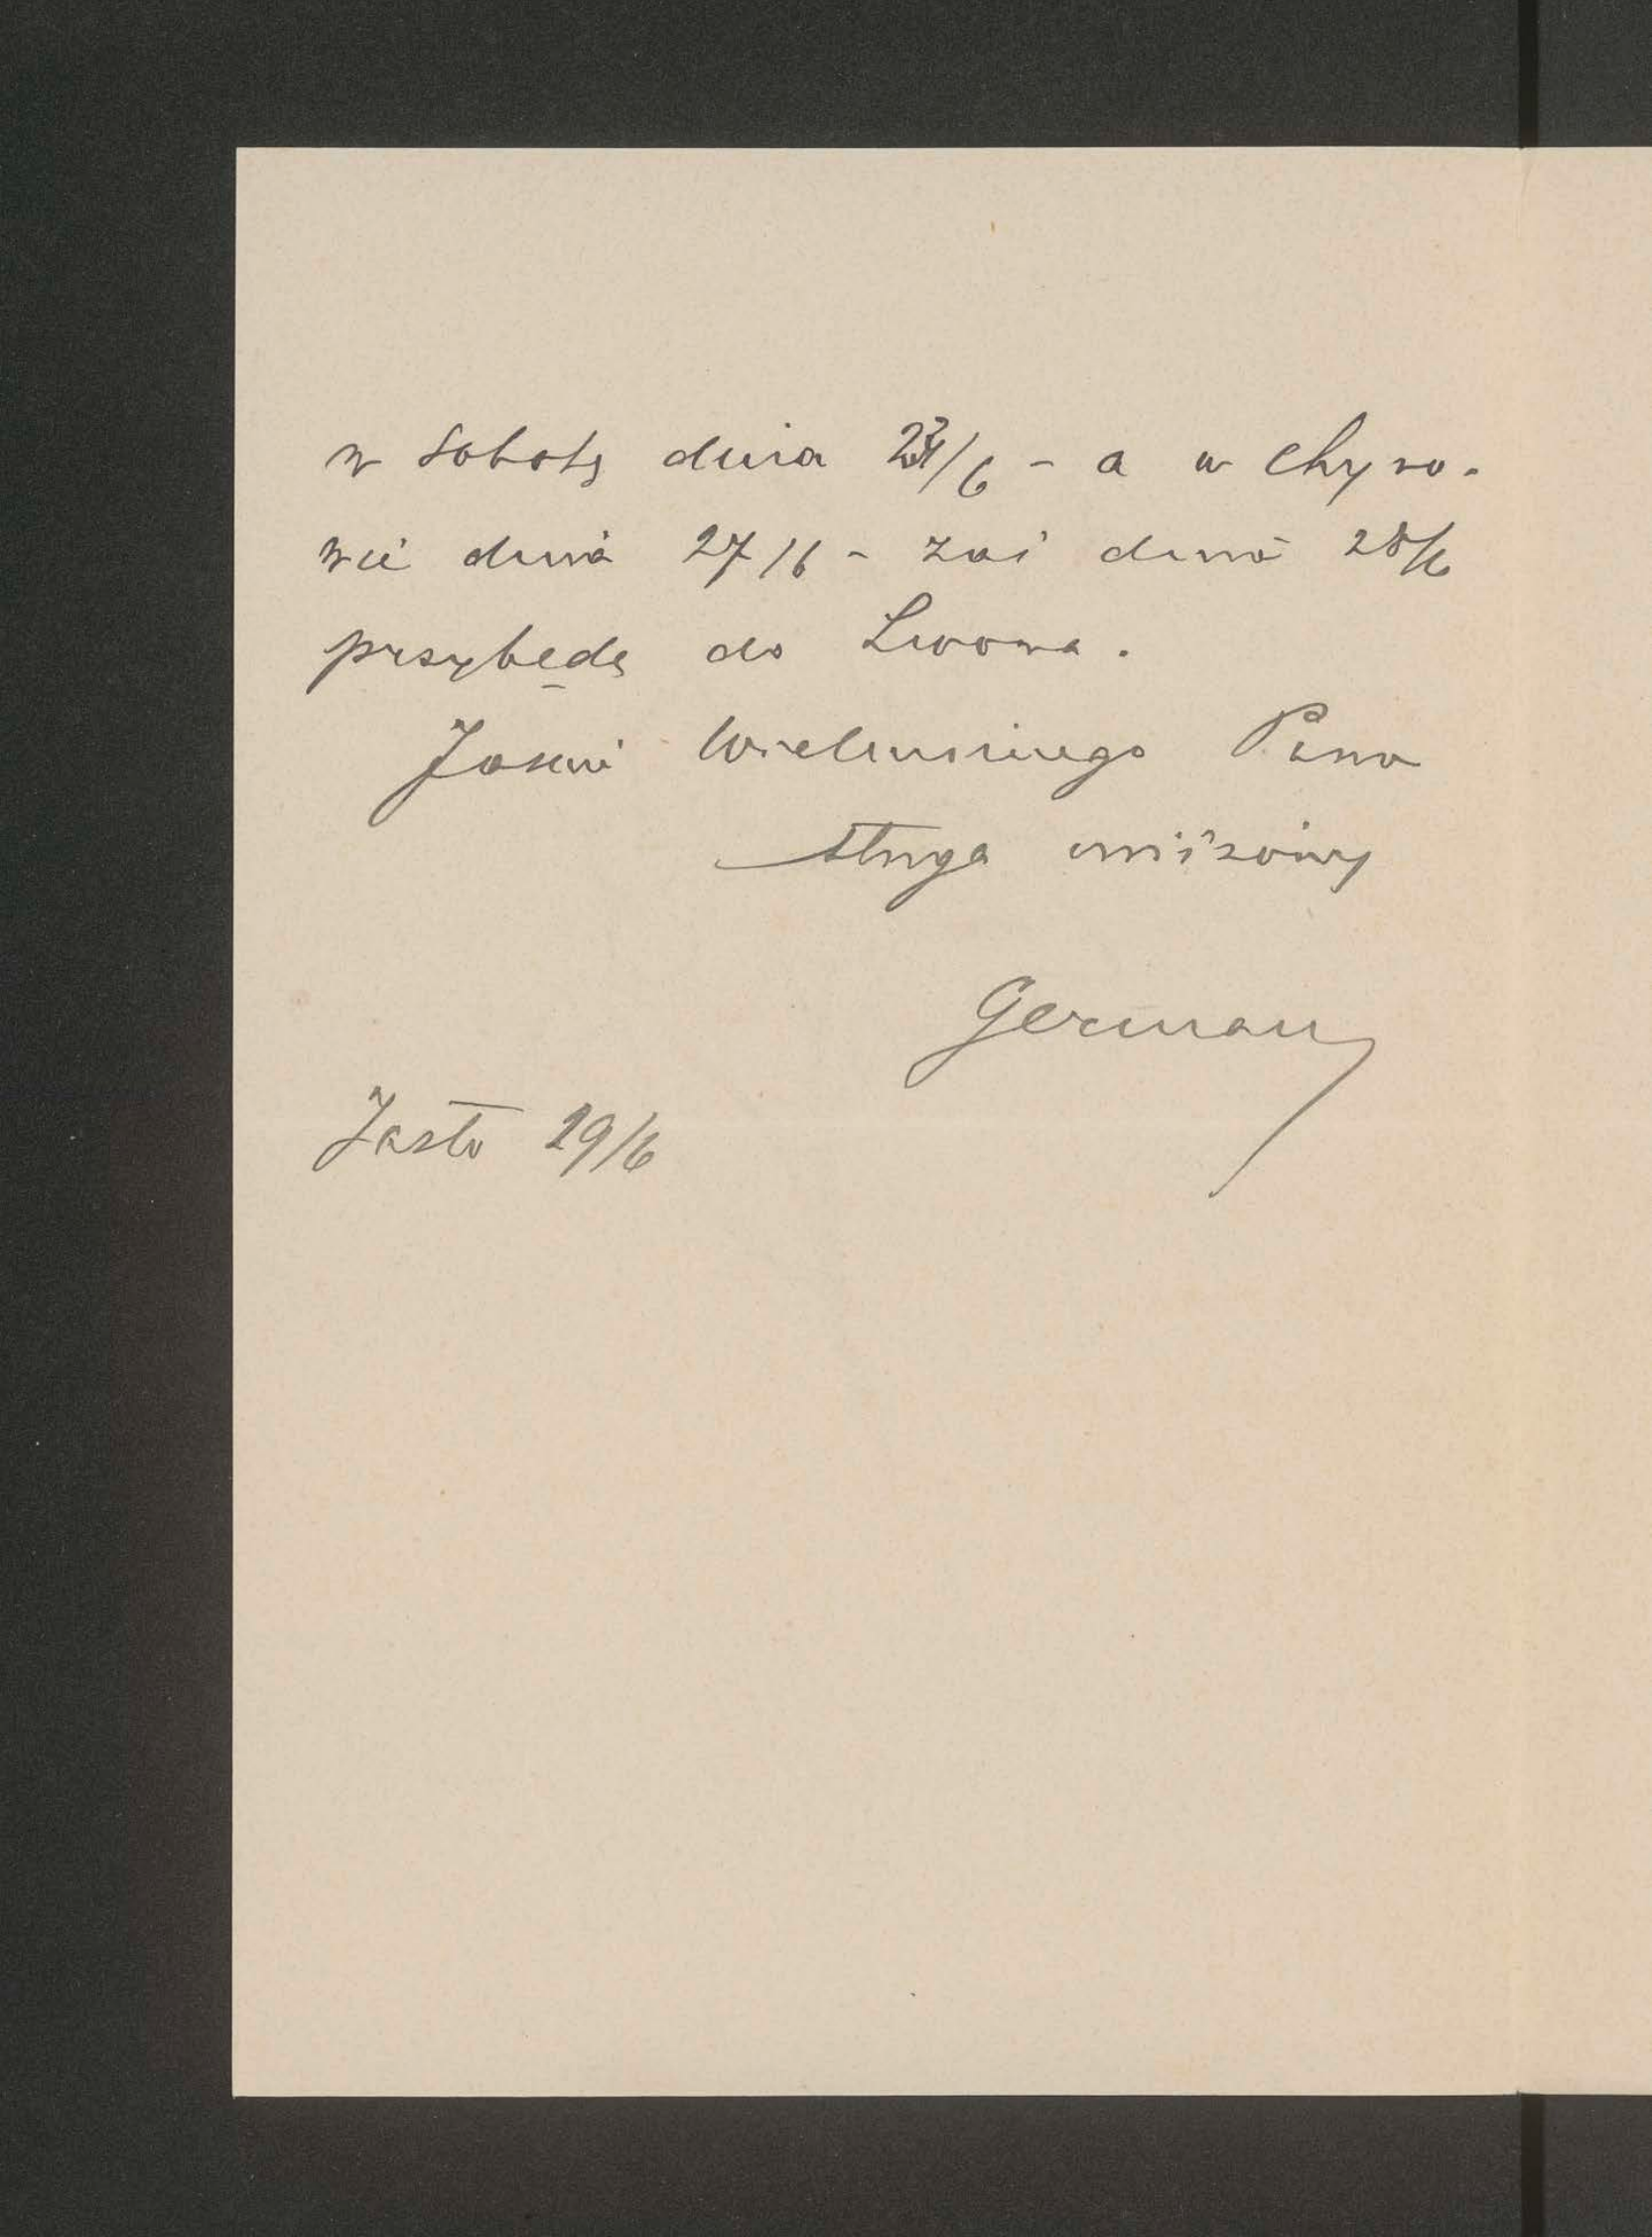 w sobotę dnia 23/6 - a w Chyro-
wie dnia 27/6 - zaś dnia 28/6
przybędę do Lwowa.
Jaśnie Wielmożnego Pana
sługa uniżony
German
Jasło 19/6